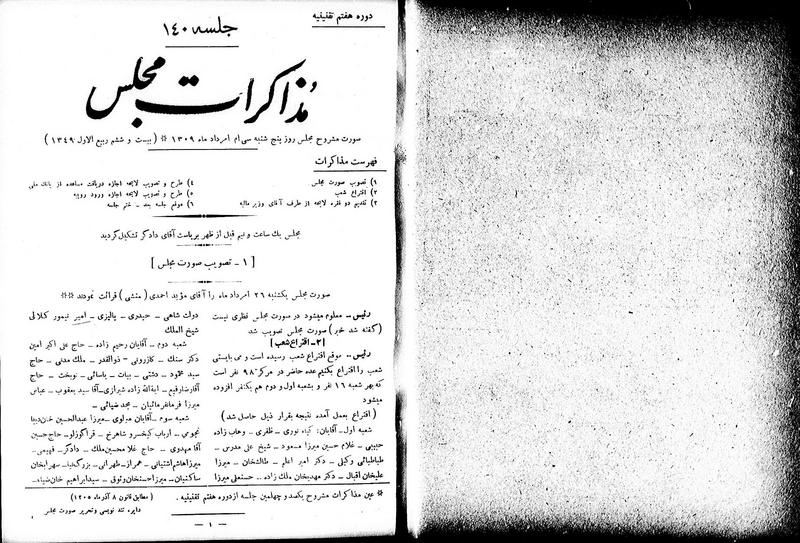 دوره هفتم تقنینیه
جلسه ۱۴۰
مذاکرات مجلس
صورت مشروح مجلس روز پنج شنبه سی ام امرداد ماه ۱۳۰۹ * (بیست و ششم ربیع الاول ۱۳۴۹)
فهرست مذاکرات
۱) تصویب صورت مجلس
۲) اقتراع شعب
۳) تقدیم دو فقره لایحه از طرف آقای وزیر مالیه
۴) طرح و تصویب لایحه اجازه دریافت مساعده از بانک ملی
۵) طرح و تصویب لایحه اجازه ورود روپیه
۶) موقع جلسه بعد - ختم جلسه
مجلس یک ساعت و نیم قبل از ظهر بریاست آقای دادگر تشکیل گردید
[ ۱ - تصویب صورت مجلس ]
صورت مجلس یکشنبه ۲۶ امرداد ماه را آقای مؤید احمدی (منشی) قرائت نمودند **
رئیس - معلوم میشود در صورت مجلس نظری نیست
(گفته شد خیر) صورت مجلس تصویب شد
[ ۲ - اقتراع شعب ]
رئیس - موقع اقتراع شعب رسیده است و می بایستی
شعب را اقتراع بکنیم عده حاضر در مرکز ۹۸ نفر است
که بهر شعبه ۱۶ نفر و بشعبه اول و دوم هم یکنفر افزوده
میشود
(اقتراع بعمل آمده نتیجه بقرار ذیل حاصل شد)
شعبه اول - آقایان: کیاء نوری - ظفری - وهاب زاده
حبیبی - غلام حسین میرزا مسعود - شیخ علی مدرس -
طباطبائی وکیل - دکتر امیر اعلم - طالشخان - میرزا
علیخان اقبال - دکتر مهدیخان ملک زاده - حسنعلی میرزا
دولت شاهی - حیدری - پالیزی - امیر تیمور کلالی
شیخ الملک
شعبه دوم - آقایان رحیم زاده - حاج علی اکبر امین
دکتر سنگ - کازرونی - ذوالقدر - ملک مدنی - حاج
سید محمود - دشتی - بیات - یاسائی - نوبخت - حاج
آقا رضا رفیع - آیةالله زاده شیرازی - آقا سید یعقوب - عباس
میرزا فرمانفرمائیان - مجد ضیائی -
شعبه سوم - آقایان میلوی - میرزا عبدالحسین خان دیبا
نجومی - ارباب کیخسرو شاهرخ - قراگوزلو - حاج حسین
آقا مهدوی - حاج غلامحسین ملک - دادگر - فهیمی -
میرزا هاشم آشتیانی - همراز - طهرانی - بزرگ نیا - سهرابخان
ساکنیان - میرزا حسنخان وثوق - سید ابراهیم خان ضیاء -
* عین مذاکرات مشروح یکصد و چهلمین جلسه از دوره هفتم تقنینیه .
(مطابق قانون ۸ آذر ماه ۱۳۰۵)
دایره تند نویسی و تحریر صورت مجلس
— ۱ —